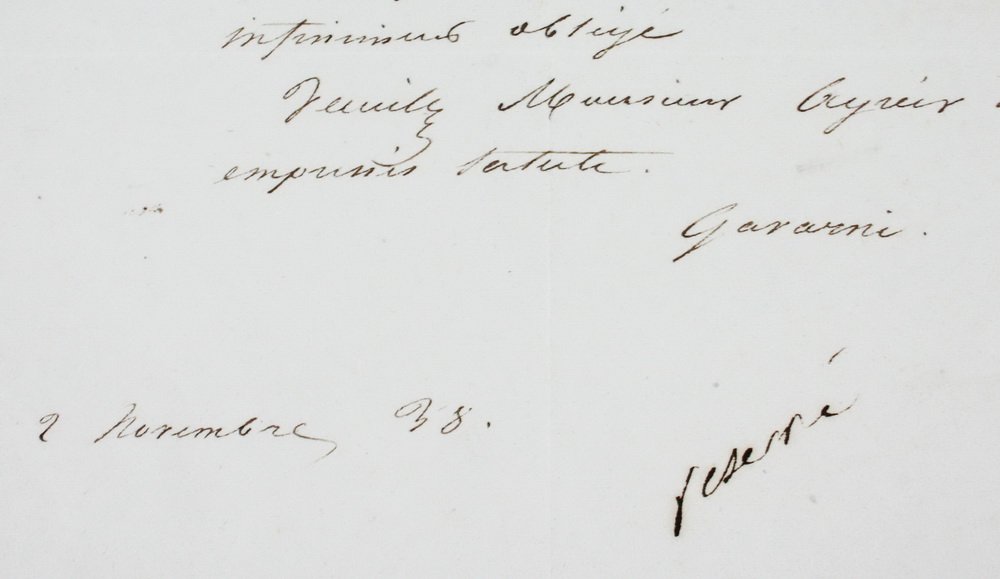 infiniment obligé
Veuillez Monsieur Agréer
empressés salute.
Gavarni.
2 Novembre 38.
réservé